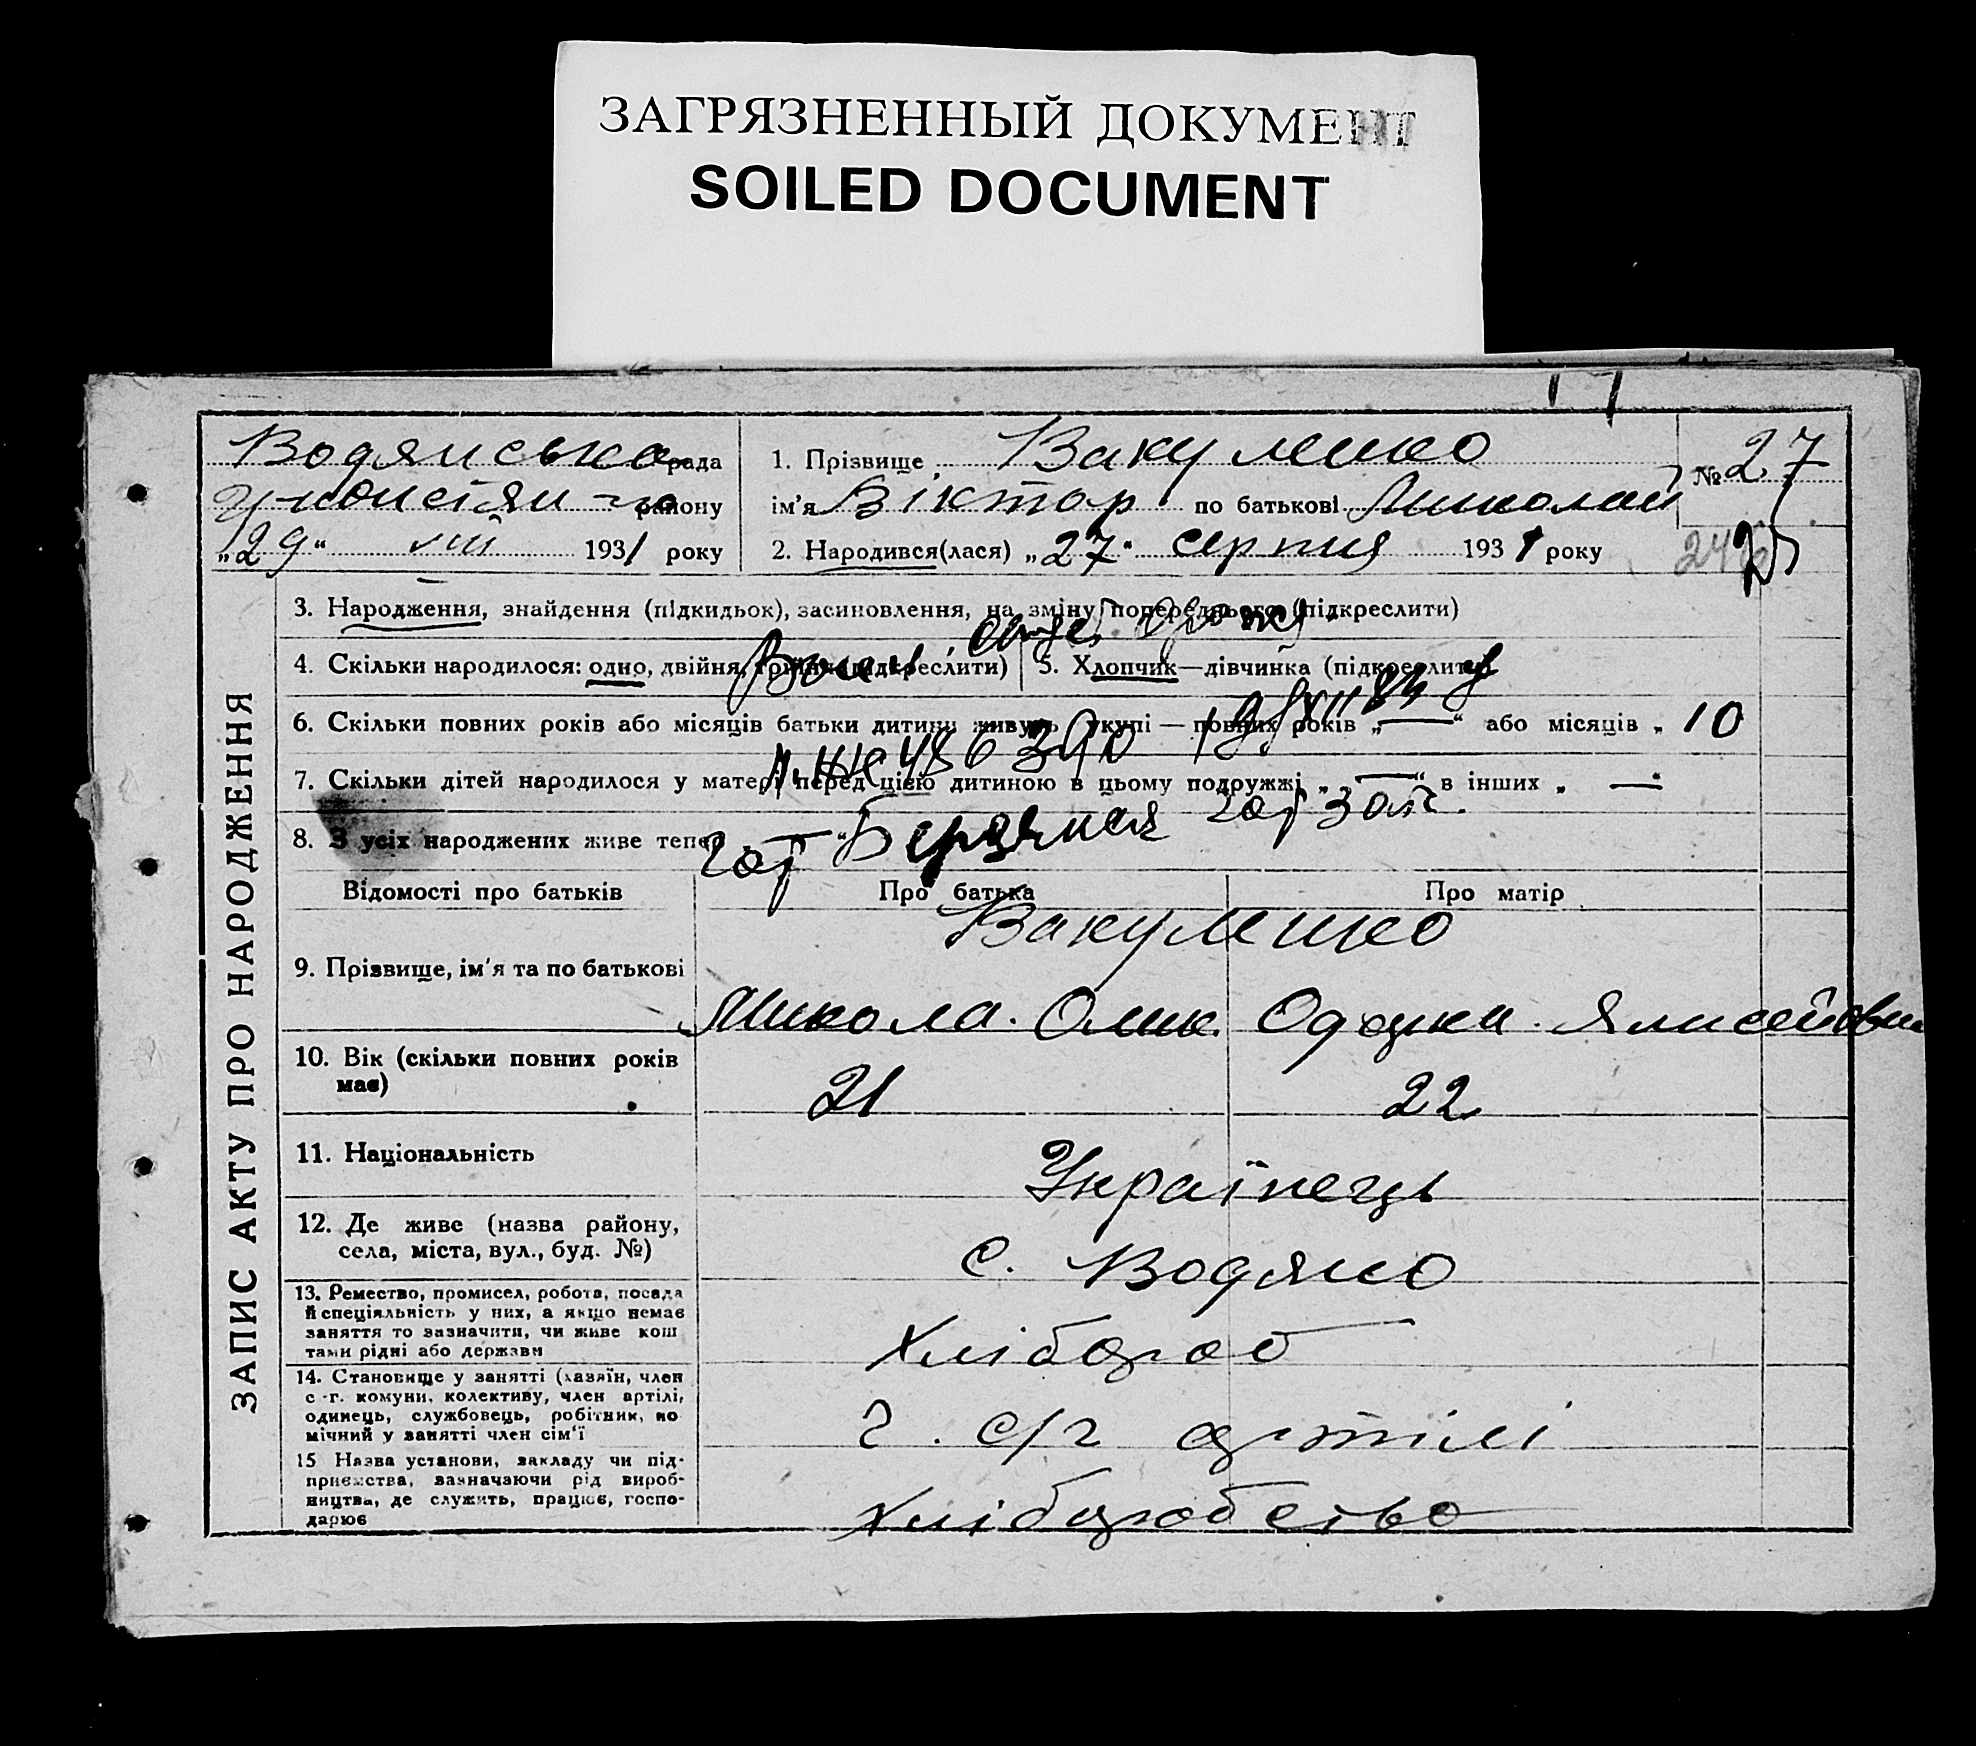 ЗАГРЯЗНЕННЫЙ ДОКУМЕНТ
SOILED DOCUMENT
ЗАПИС АКТУ ПРО НАРОДЖЕННЯ
Водянська рада
району
„29“ VIII 1931 року
1. Прізвище Вакуленко
ім'я Віктор по батькові Миколай
2. Народився(лася) „27“ серпня 1931 року
№ 27
3. Народження, знайдення (підкидьок), засиновлення, на зміну попереднього (підкреслити)
4. Скільки народилося: одно, двійня, трійня (підкреслити)
5. Хлопчик—дівчинка (підкреслити)
6. Скільки повних років або місяців батьки дитини живуть укупі — повних років „—“ або місяців „10
7. Скільки дітей народилося у матері перед цією дитиною в цьому подружжі „—“ в інших „—“
8. З усіх народжених живе тепер „—“
Відомості про батьків
Про батька
Про матір
9. Прізвище, ім'я та по батькові
Вакуленко
Микола
10. Вік (скільки повних років має)
21
22
11. Національність
Українець
12. Де живе (назва району,
села, міста, вул., буд. №)
с. Водяно
13. Ремество, промисел, робота, посада
й спеціяльність у них, а якщо немає
заняття то зазначити, чи живе кош
тами рідні або держави
Хлібороб
14. Становище у занятті (хазяїн, член
с-г. комуни, колективу, член артілі,
одинець, службовець, робітник, по
мічний у занятті член сім'ї
с/г артілі
15 Назва установи, закладу чи під-
приємства, зазначаючи рід вироб-
ництва, де служить, працює, госпо-
дарює
Хліборобство